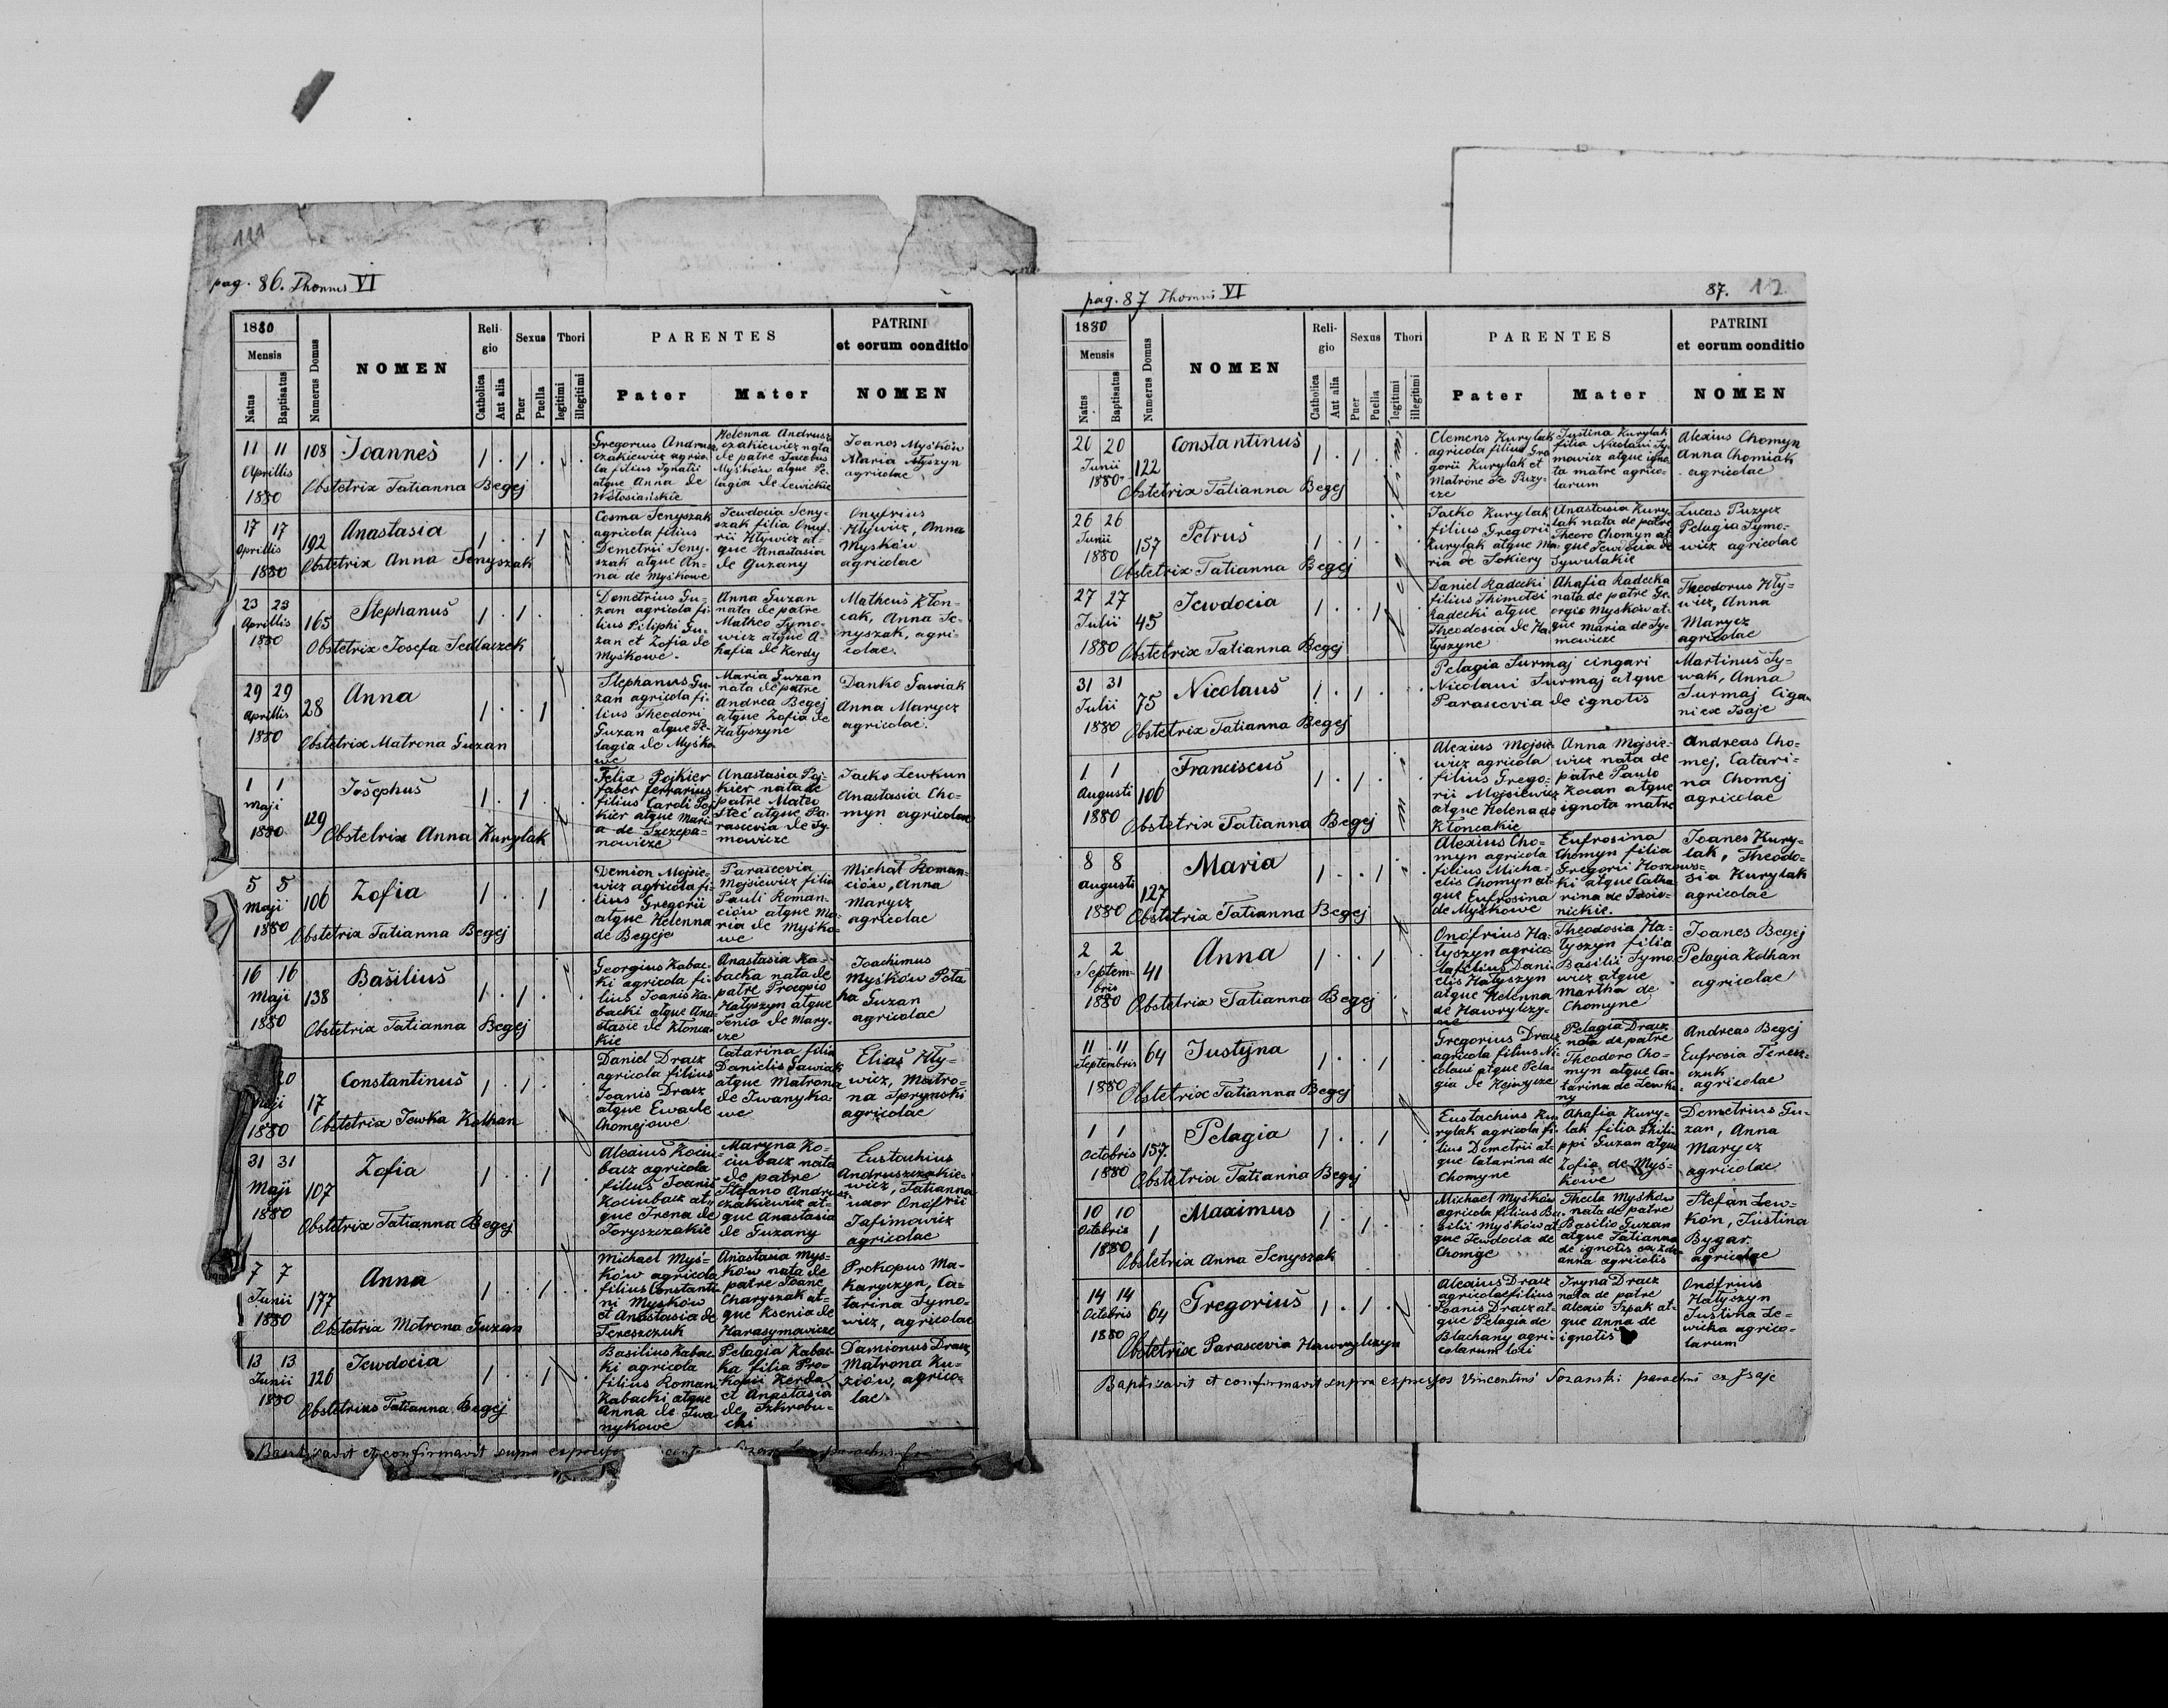 111
pag. 86. Thomus VI
1880
Mensis
Natus
Baptisatus
Numerus Domus
NOMEN
Religio
Catholica
Aut alia
Sexus
Puer
Puella
Thori
legitimi
illegitimi
PARENTES
Pater
Mater
PATRINI
et eorum conditio
NOMEN
11 11 Aprillis 1880
108
Joannes
Obstetrix Tatianna Begej
Gregorius Andrusz-
czakiewicz agrico-
la filius Ignatii
atque Anna de
Wołosiańskie
Helenna Andrusz-
czakiewicz nata
de patre Jacobus
Myśków atque Pe-
lagia de Lewickie
Joanes Myśków
Maria Hłyszyn
agricolae
17 17 Aprillis 1880
192
Anastasia
Obstetrix Anna Senyszak
Cosma Senyszak
agricola filius
Demetrii Seny-
szak atque An-
na de Myśkowe
Jewdocia Seny-
szak filia Onuf-
rii Hływicz at-
que Anastasia
de Guzany
Onufrius
Hływicz, Anna
Myśków
agricolae
23 23 Aprillis 1880
165
Stephanus
Obstetrix Josefa Sedlaczek
Demetrius Gu-
zan agricola fi-
lius Piliphi Gu-
zan et Zofia de
Myśkowe.
Anna Guzan
nata de patre
Matheo Symo-
wicz atque A-
hafia de Kerdy
Matheus Kłon-
cak, Anna Se-
nyszak, agri-
colae.
29 29 Aprillis 1880
28
Anna
Obstetrix Matrona Guzan
Stephanus Gu-
zan agricola fi-
lius Theodori
Guzan atque Pe-
lagia de Myśko-
we
Maria Guzan
nata de patre
Andrea Begej
atque Zofia de
Hałyszyne
Danko Gawiak
Anna Marycz
agricolae.
1 1 Maji 1880
129
Josephus
Obstetrix Anna Kurylak
Felix Pojkier
faber ferrarius
filius Caroli Poj-
kier atque Mari-
a de Szczepa-
nowicze
Anastasia Poj-
kier nata de
patre Mateo
Steć atque Pa-
rascevia de Sy-
mowicze
Jacko Lewkun
Anastasia Cho-
myn agricolae
5 5 Maji 1880
106
Zofia
Obstetrix Tatianna Begej
Demion Mojsie-
wicz agricola fi-
lius Gregorii
atque Helenna
de Begeje
Parascevia
Mojsiewicz filia
Pauli Roman-
ciów atque Ma-
ria de Myśko-
we
Michał Roman-
ciów, Anna
Marycz
agricolae
16 16 Maji 1880
138
Basilius
Obstetrix Tatianna Begej
Georgius Kabac-
ki agricola fi-
lius Joanis Ka-
backi atque Ana-
stasie de Kłonca-
kie
Anastasia Ka-
backa nata de
patre Procopio
Hałyszyn atque
Xenia de Mary-
cze
Joachimus
Myśków Poła-
ha Guzan
agricolae
20 Maji 1880
17
Constantinus
Obstetrix Jewka Kolhan
Daniel Dracz
agricola filius
Joanis Dracz
atque Ewa de
Chomejowe
Catarina filia
Danielis Gawiak
atque Matrona
de Iwanyko-
we
Elias Hły-
wicz, Matro-
na Sprynski
agricolae
31 31 Maji 1880
107
Zofia
Obstetrix Tatianna Begej
Alexius Kociu-
bacz agricola
filius Joanis
Kociubacz at-
que Irena de
Toryszczakie
Maryna Ko-
ciubacz nata
de patre
Stefano Andrusz-
czakiewicz at-
que Anastasia
de Guzany
Eustachius
Andruszczakie-
wicz, Tatianna
uxor Onofrii
Jafimowicz
agricolae
7 7 Junii 1880
177
Anna
Obstetrix Motrona Guzan
Michael Myś-
ków agricola
filius Constanti-
ni Myśków
et Anastasia de
Tereszczuk
Anastasia Myś-
ków nata de
patre Joane
Charyszak at-
que Ksenia de
Harasymowicze
Prokopus Ma-
karyczyn, Ca-
tarina Symo-
wicz, agricolae
13 13 Junii 1880
126
Jewdocia
Obstetrius Tatianna Begej
Basilius Kabac-
ki agricola
filius Romani
Kabacki atque
Anna de Iwa-
nykowe
Pelagia Kabac-
ka filia Pro-
kopii Kerda
et Anastasia
de Szkrobu-
chi
Damionus Dracz
Matrona Ku-
ziów, agrico-
lae
Baptisavit et confirmavit supra
pag. 87 Thomus VI
87. 12
1880
Mensis
Natus
Baptisatus
Numerus Domus
NOMEN
Religio
Catholica
Aut alia
Sexus
Puer
Puella
Thori
legitimi
illegitimi
PARENTES
Pater
Mater
PATRINI
et eorum conditio
NOMEN
20 20 Junii 1880
122
Constantinus
Obstetrix Tatianna Begej
Clemens Kurylak
agricola filius Gre-
gorii Kurylak et
Matrone de Puzy-
cze
Justina Kurylak
filia Nicolaui Sy-
mowicz atque igno-
ta matre agrico-
larum
Alexius Chomyn
Anna Chomiak
agricolae
26 26 Junii 1880
157
Petrus
Obstetrix Tatianna Begej
Jacko Kurylak
filius Gregorii
Kurylak atque Ma-
ria de Sokiery
Anastasia Kury-
lak nata de patre
Theoro Chomyn at-
que Jewdocia de
Sywulakie
Lucas Puzycz
Pelagia Symo-
wicz agricolae
27 27 Julii 1880
45
Jewdocia
Obstetrix Tatianna Begej
Daniel Radecki
filius Thimotei
Radecki atque
Theodosia de Ha-
łyszyne
Ahafia Radecka
nata de patre Ge-
orgio Myśków at-
que Maria de Sy-
mowicze
Theodorus Hły-
wicz, Anna
Marycz
agricolae
31 31 Julii 1880
75
Nicolaus
Obstetrix Tatianna Begej
Pelagia Surmaj cingari
Nicolaui Surmaj atque
Parascevia de ignotis
Martinus Sy-
wak, Anna
Surmaj Cigan
ni ex Isaje
1 1 Augusti 1880
106
Franciscus
Obstetrix Tatianna Begej
Alexius Mojsie-
wicz agricola
filius Grego-
rii Mojsiewicz
atque Helena de
Kłoncakie
Anna Mojsie-
wicz nata de
patre Paulo
Kocan atque
ignota matre
Andreas Cho-
mej, Catari-
na Chomej
agricolae
8 8 Augusti 1880
127
Maria
Obstetrix Tatianna Begej
Alexius Cho-
myn agricola
filius Micha-
elis Chomyn at-
que Eufrosina
de Myśkowe
Eufrosina
Chomyn filia
Gregorii Horzows-
ki atque Catha-
rina de Jasie-
nickie.
Joanes Kury-
lak, Theodo-
sia Kurylak
agricolae
2 2 Septem-
bris 1880
41
Anna
Obstetrix Tatianna Begej
Onófrius Ha-
łyszyn agrico-
la filius Dani-
elis Hałyszyn
atque Helenna
de Hawrylczy-
ne
Theodosia Ha-
łyszyn filia
Basilii Symo-
wicz atque
Martha de
Chomyne
Joanes Begej
Pelagia Kolhan
agricolae
11 11 Septembris 1880
64
Justyna
Obstetrix Tatianna Begej
Gregorius Dracz
agricola filius Ni-
colaui atque Pela-
gia de Hejnycze
Pelagia Dracz
nata de patre
Theodoro Cho-
myn atque Ca-
tarina de Lewko-
ny
Andreas Begej
Eufrosia Teresz-
czuk
agricolae
1 1 Octobris 1880
157.
Pelagia
Obstetrix Tatianna Begej
Eustachius Ku-
rylak agricola fi-
lius Demetrii at-
que Catarina de
Chomyne
Ahafia Kury-
lak filia Phili-
ppi Guzan atque
Zofia de Myś-
kowe
Demetrius Gu-
zan, Anna
Marycz
agricolae
10 10 Octobris 1880
1
Maximus
Obstetrix Anna Senyszak
Michael Myśków
agricola filius Ba-
silii Myśków at-
que Jewdocia de
Chomje
Thecla Myśków
nata de patre
Basilio Guzan
atque Tatianna
de ignotis
agricolis
Stefan Lew-
kón, Justina
Bygar
agricolae
14 14 Octobris 1880
64
Gregorius
Obstetrix Parascevia Hawrylczyn
Alexius Dracz
agricolae filius
Joanis Dracz at-
que Pelagia de
Blachany agri-
colarum loci
Iryna Dracz
nata de patre
Alexio Szpak at-
que Anna de
ignotis
Onófrius
Hałyczyn
Justina Le-
wicka agrico-
larum
Baptisavit et confirmavit supra expressos Vincentius Sozanski parochus ex Isaje